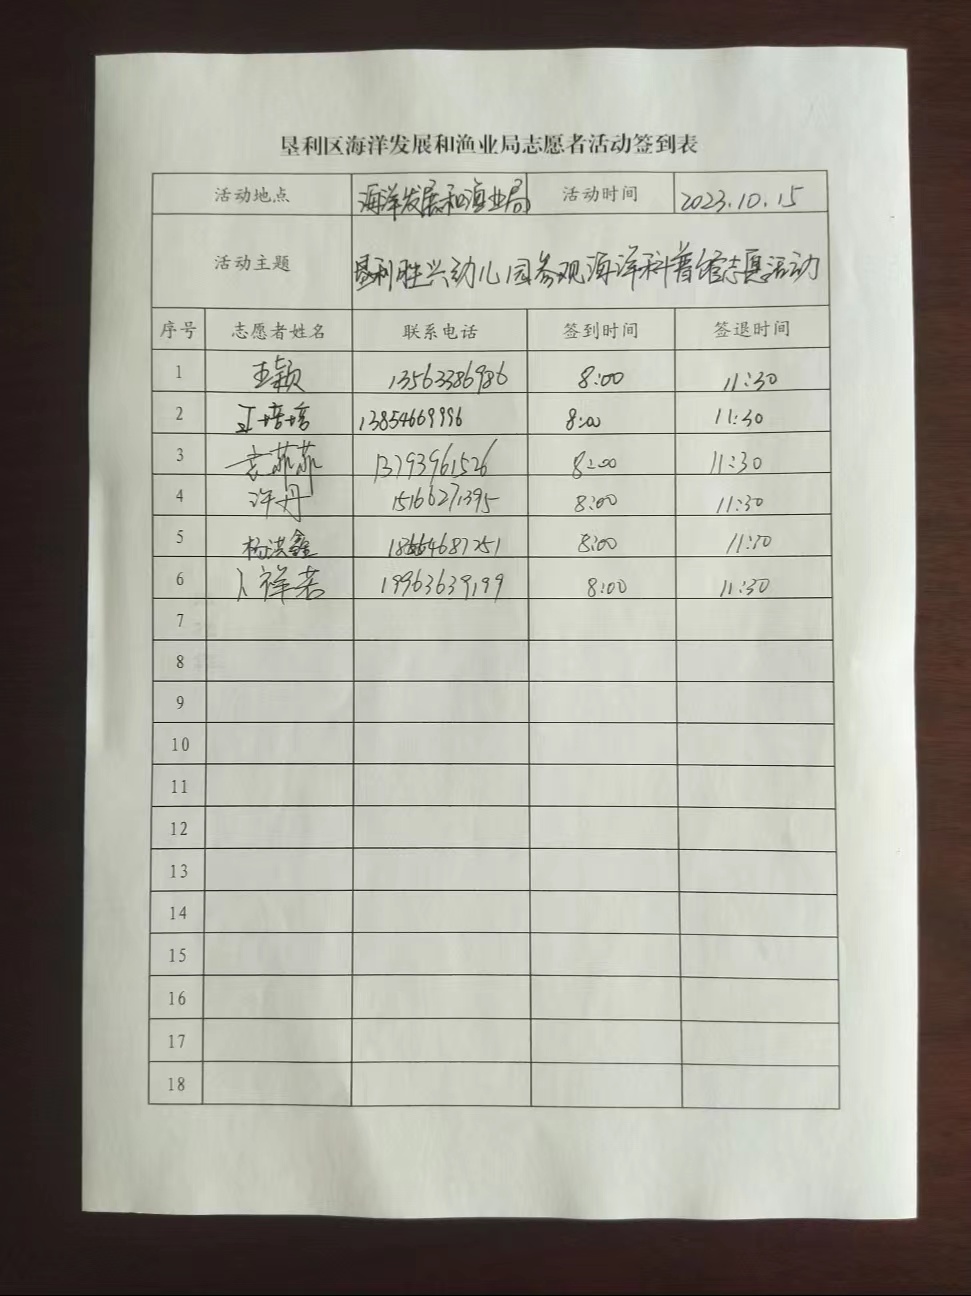 垦利区海洋发展和渔业局志愿者活动签到表
活动地点 海洋发展和渔业局 活动时间 2023.10.15
活动主题 垦利胜兴幼儿园参观海洋科普馆志愿活动
序号 志愿者姓名 联系电话 签到时间 签退时间
1 王颖 13563386986 8:00 11:30
2 王培培 13854669996 8:00 11:30
3 袁菲菲 13793961526 8:00 11:30
4 许丹 15166271395 8:00 11:30
5 杨洪鑫 8:00 11:30
6 卜祥若 19963639199 8:00 11:30
7
8
9
10
11
12
13
14
15
16
17
18